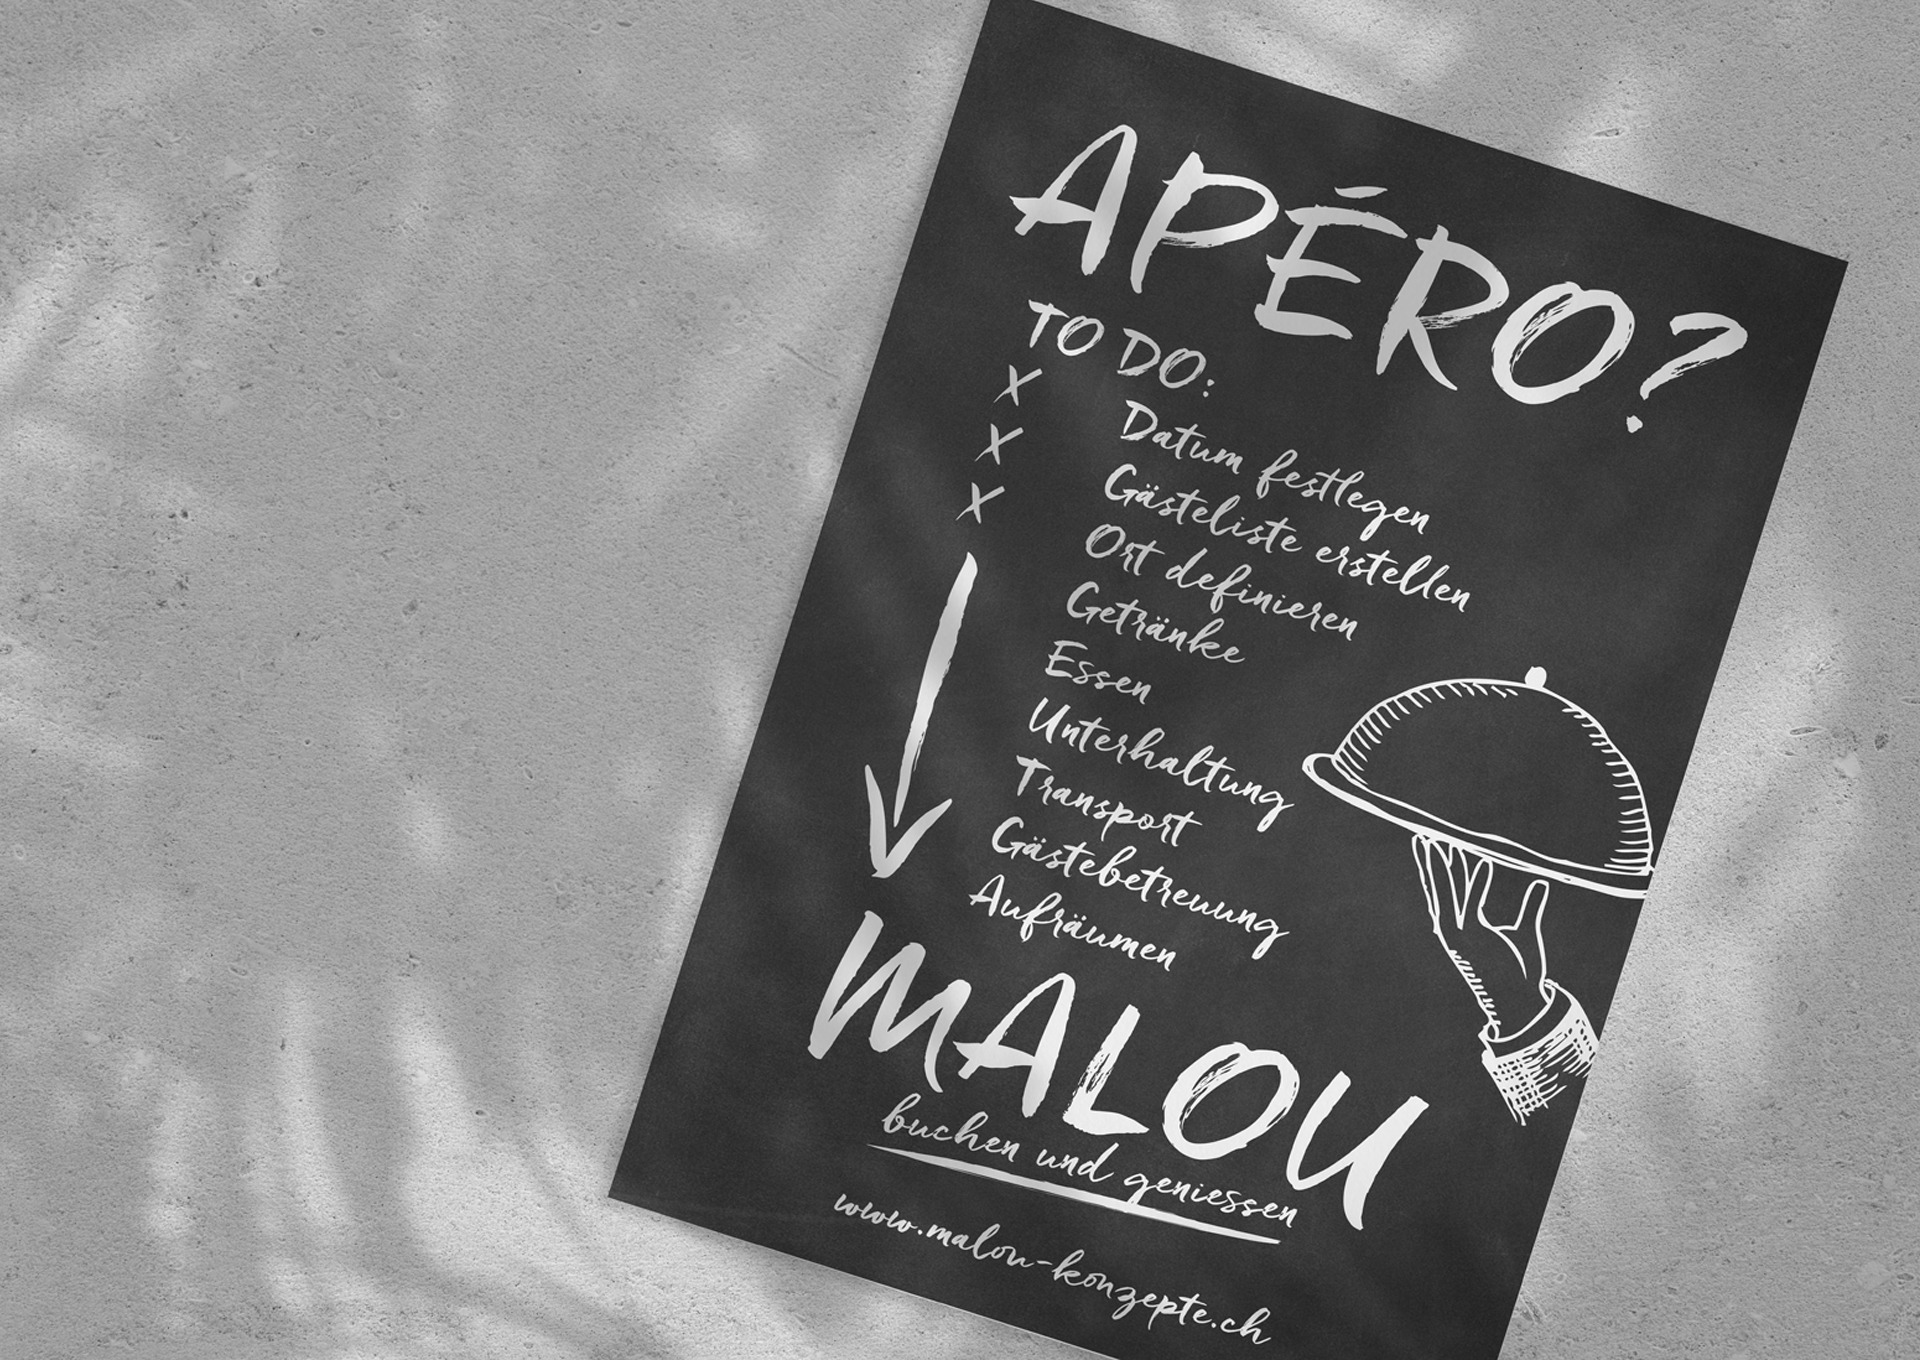 APÉRO?
TO DO:
X
X
X
Datum festlegen
Gästeliste erstellen
Ort definieren
Getränke
Essen
Unterhaltung
Transport
Gästebetreuung
Aufräumen
MALOU
buchen und geniessen
www.malou-konzepte.ch